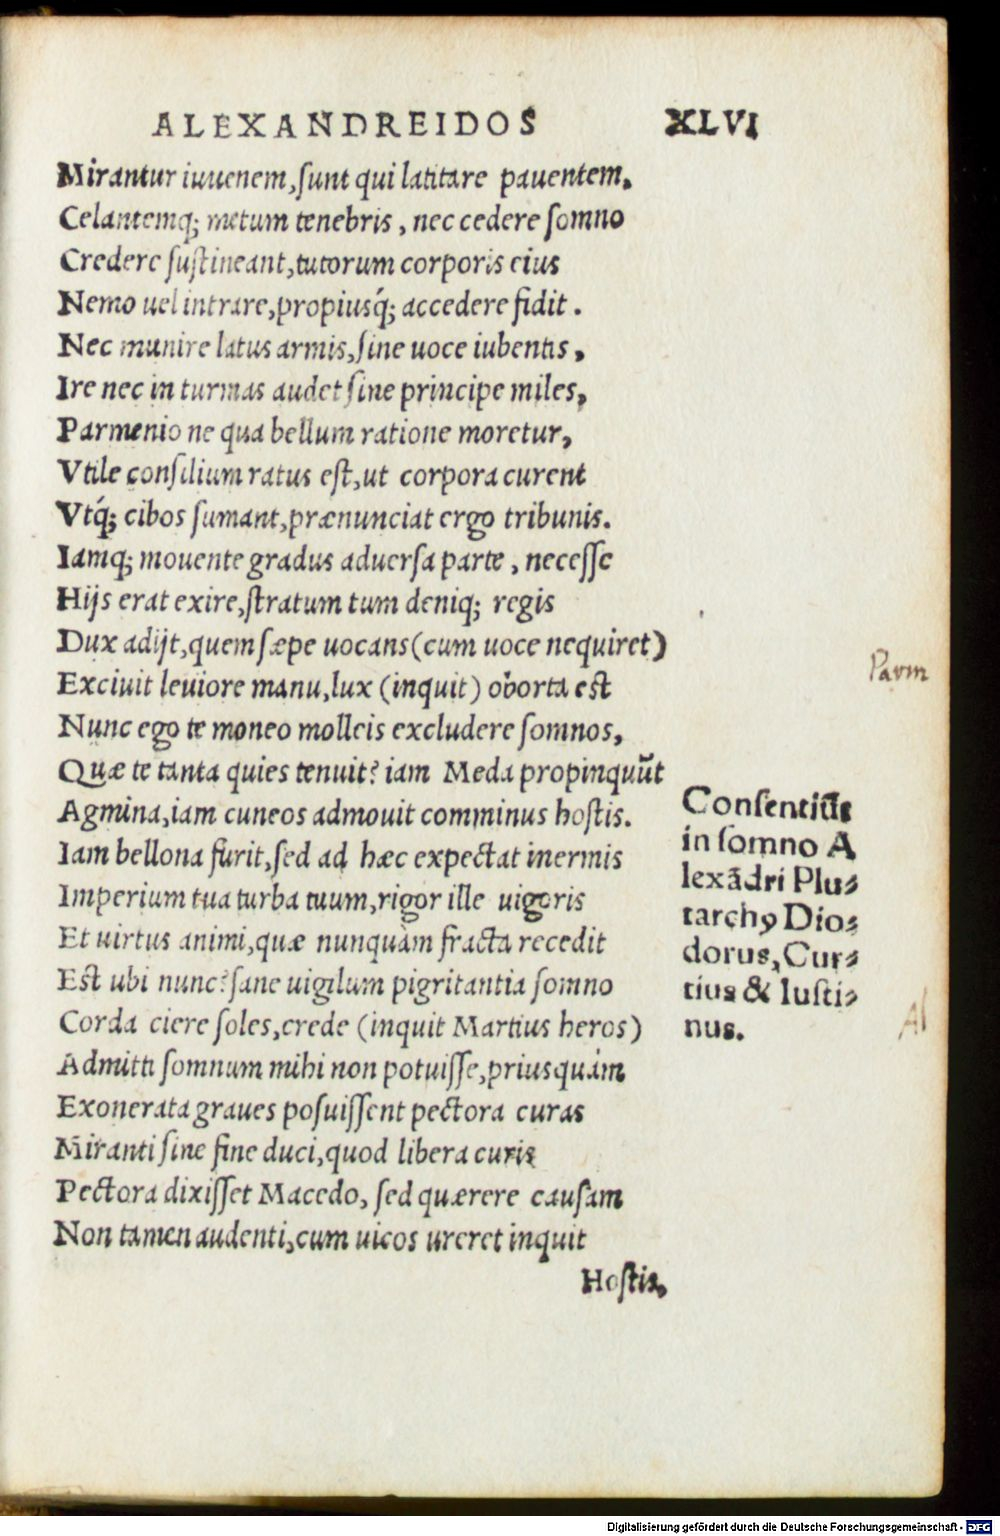 ALEXANDREIDOS XLVI
Mirantur iuuenem, ſunt qui latitare pauentem,
Celantemq; metum tenebris, nec cedere ſomno
Credere ſuſtineant, tutorum corporis eius
Nemo uel intrare, propiusq́; accedere fidit.
Nec munire latus armis, ſine uoce iubentis,
Ire nec in turmas audet ſine principe miles,
Parmenio ne qua bellum ratione moretur,
Vtile conſilium ratus eſt, ut corpora curent
Vtq́; cibos ſumant, prænunciat ergo tribunis.
Iamq; mouente gradus aduerſa parte, neceſſe
Hijs erat exire, ſtratum tum deniq; regis
Dux adijt, quem ſæpe uocans (cum uoce nequiret)
Exciuit leuiore manu, lux (inquit) oborta est
Nunc ego te moneo molleis excludere ſomnos,
Quæ te tanta quies tenuit? iam Meda propinquūt
Agmina, iam cuneos admouit comminus hoſtis.
Iam bellona furit, ſed ad hæc expectat inermis
Imperium tua turba tuum, rigor ille uigoris
Et uirtus animi, quæ nunquàm fracta recedit
Eſt ubi nunc? ſane uigilum pigritantia ſomno
Corda ciere ſoles, crede (inquit Martius heros)
Admitti ſomnum mihi non potuiſſe, priusquàm
Exonerata graues poſuiſſent pectora curas
Miranti ſine fine duci, quod libera curis
Pectora dixiſſet Macedo, ſed quærere cauſam
Non tamen audenti, cum uicos ureret inquit
Hoſtis,
Parm
Conſentiūt
in ſomno A
lexādri Plu⸗
tarchꝰ Dio⸗
dorus, Cur⸗
tius & Iuſti⸗
nus.
Al
Digitalisierung gefördert durch die Deutsche Forschungsgemeinschaft - DFG